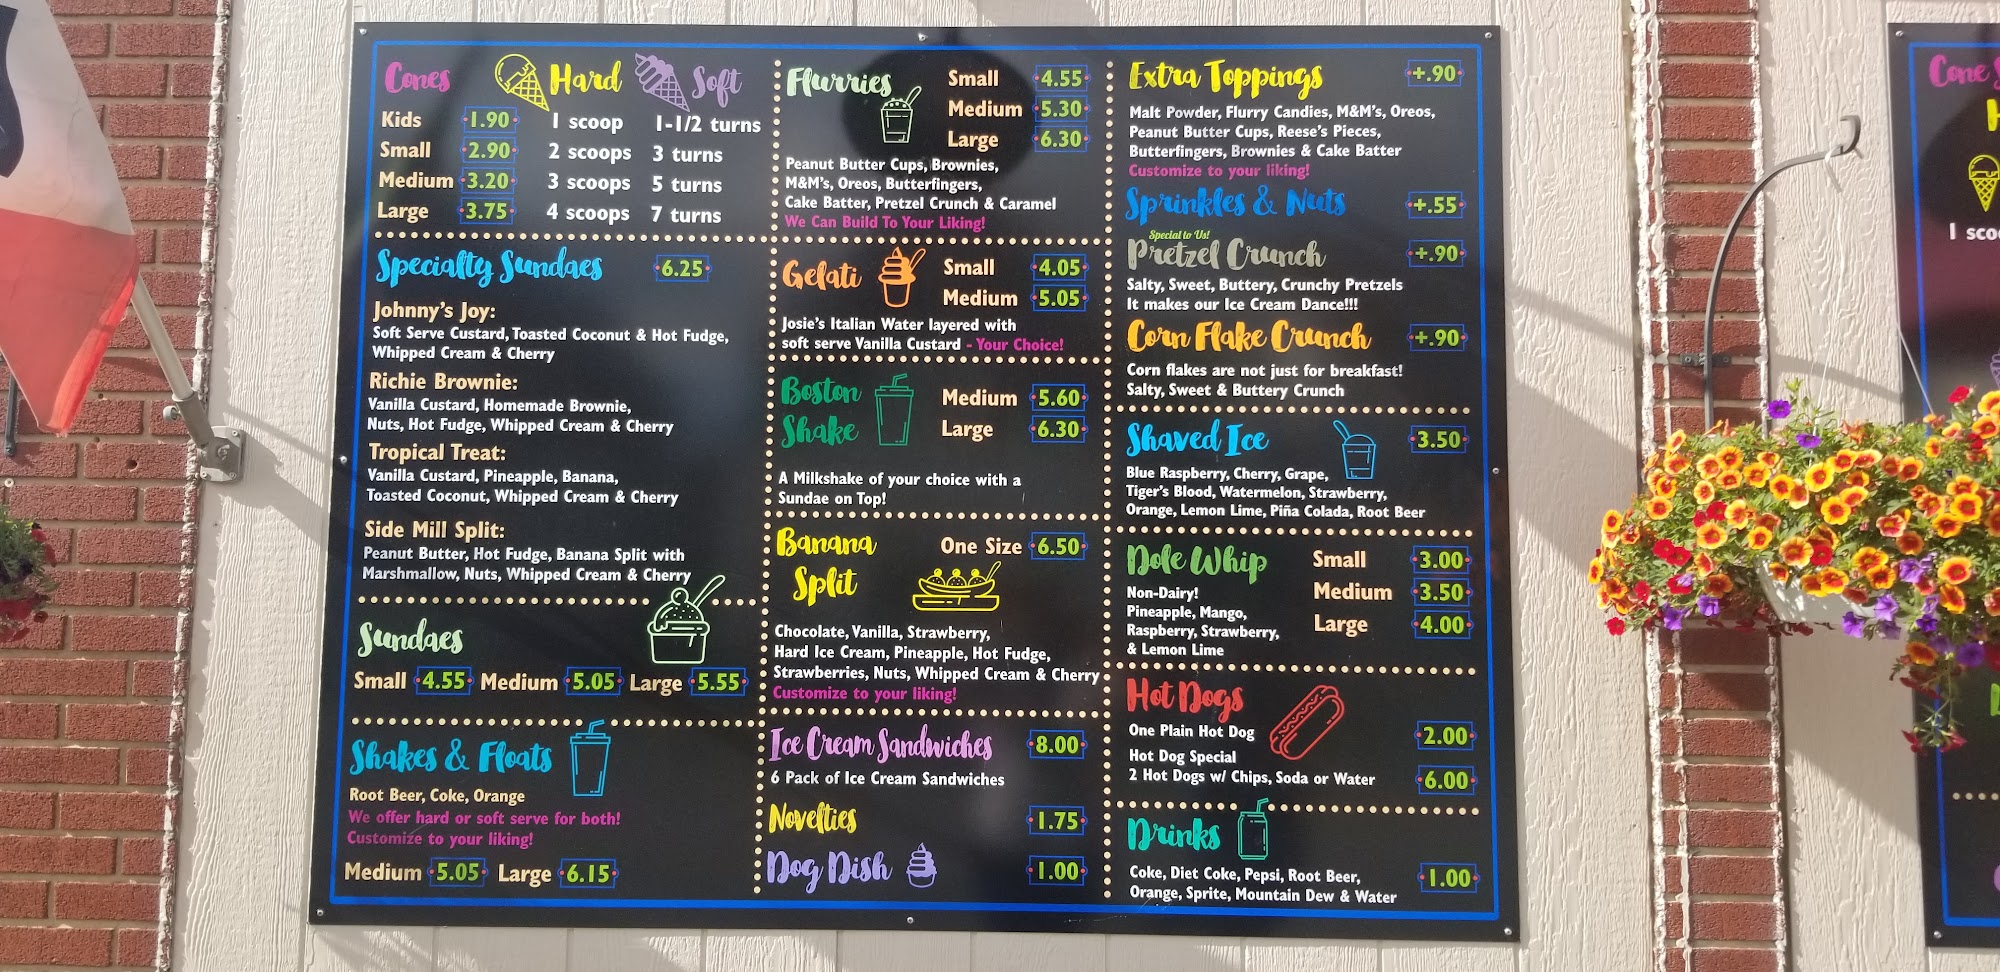 Cones Hard Soft
Kids 1.90 1 scoop 1-1/2 turns
Small 2.90 2 scoops 3 turns
Medium 3.20 3 scoops 5 turns
Large 3.75 4 scoops 7 turns
Specialty Sundaes 6.25
Johnny's Joy:
Soft Serve Custard, Toasted Coconut & Hot Fudge,
Whipped Cream & Cherry
Richie Brownie:
Vanilla Custard, Homemade Brownie,
Nuts, Hot Fudge, Whipped Cream & Cherry
Tropical Treat:
Vanilla Custard, Pineapple, Banana,
Toasted Coconut, Whipped Cream & Cherry
Side Mill Split:
Peanut Butter, Hot Fudge, Banana Split with
Marshmallow, Nuts, Whipped Cream & Cherry
Sundaes
Small 4.55 Medium 5.05 Large 5.55
Shakes & Floats
Root Beer, Coke, Orange
We offer hard or soft serve for both!
Customize to your liking!
Medium 5.05 Large 6.15
Flurries
Small 4.55
Medium 5.30
Large 6.30
Peanut Butter Cups, Brownies,
M&M's, Oreos, Butterfingers,
Cake Batter, Pretzel Crunch & Caramel
We Can Build To Your Liking!
Gelati
Small 4.05
Medium 5.05
Josie's Italian Water layered with
soft serve Vanilla Custard - Your Choice!
Boston
Shake
Medium 5.60
Large 6.30
A Milkshake of your choice with a
Sundae on Top!
Banana
Split
One Size 6.50
Chocolate, Vanilla, Strawberry,
Hard Ice Cream, Pineapple, Hot Fudge,
Strawberries, Nuts, Whipped Cream & Cherry
Customize to your liking!
Ice Cream Sandwiches 8.00
6 Pack of Ice Cream Sandwiches
Novelties 1.75
Dog Dish 1.00
Extra Toppings +.90
Malt Powder, Flurry Candies, M&M's, Oreos,
Peanut Butter Cups, Reese's Pieces,
Butterfingers, Brownies & Cake Batter
Customize to your liking!
Sprinkles & Nuts +.55
Special to Us!
Pretzel Crunch +.90
Salty, Sweet, Buttery, Crunchy Pretzels
It makes our Ice Cream Dance!!!
Corn Flake Crunch +.90
Corn flakes are not just for breakfast!
Salty, Sweet & Buttery Crunch
Shaved Ice 3.50
Blue Raspberry, Cherry, Grape,
Tiger's Blood, Watermelon, Strawberry,
Orange, Lemon Lime, Piña Colada, Root Beer
Dole Whip
Small 3.00
Medium 3.50
Large 4.00
Non-Dairy!
Pineapple, Mango,
Raspberry, Strawberry,
& Lemon Lime
Hot Dogs
One Plain Hot Dog 2.00
Hot Dog Special
2 Hot Dogs w/ Chips, Soda or Water 6.00
Drinks
Coke, Diet Coke, Pepsi, Root Beer,
Orange, Sprite, Mountain Dew & Water 1.00
Cone
1